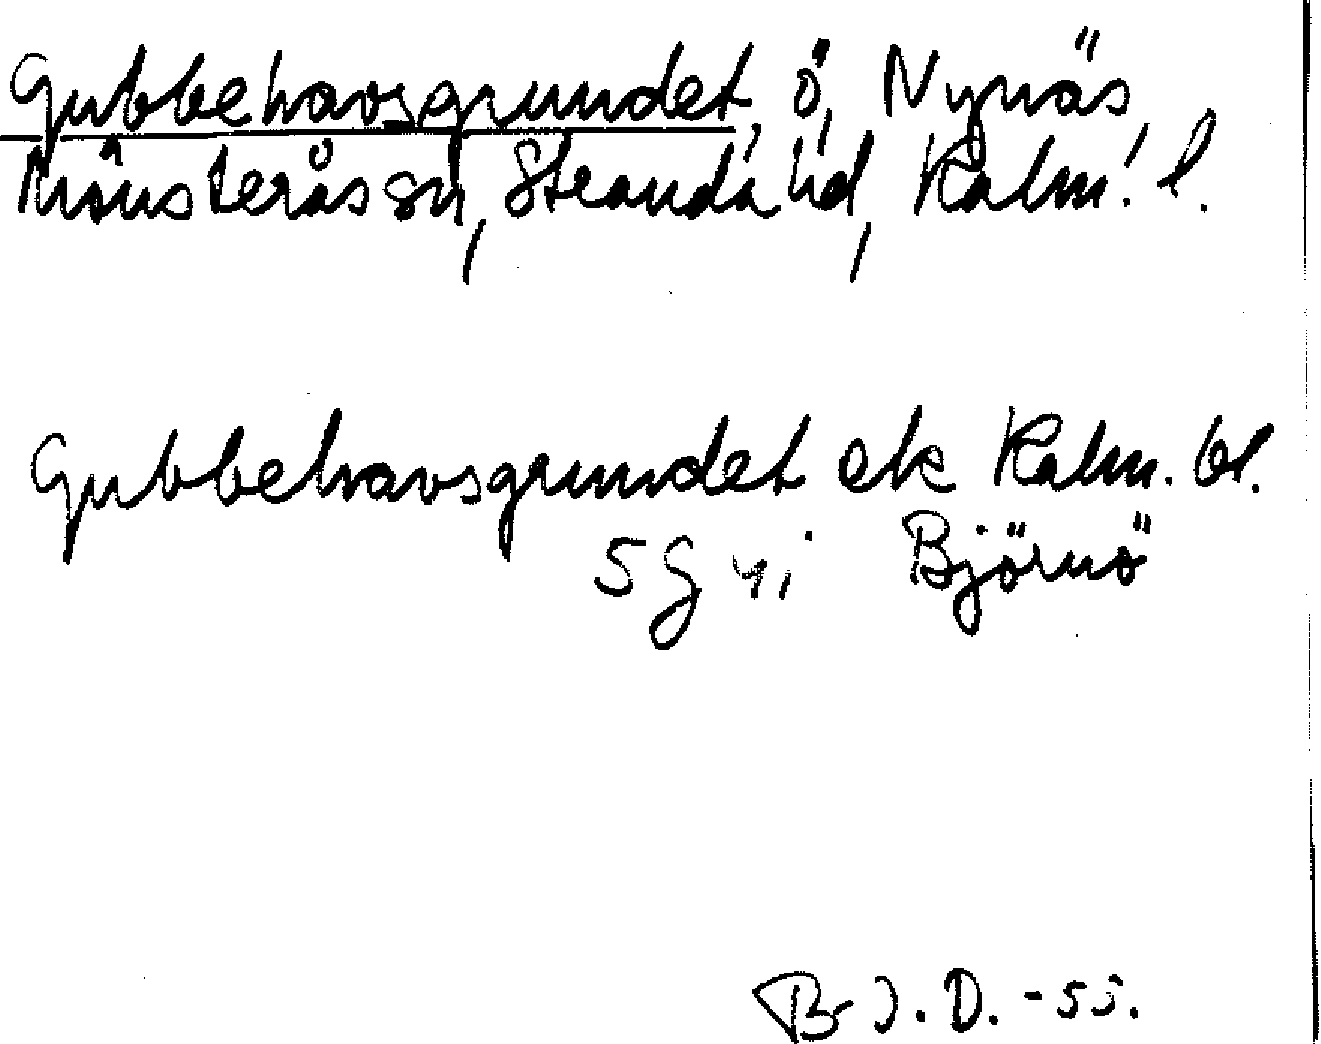 Gubbehavsgrundet, ö, Nynäs,
Mönsterås sn, Stranda hd, Kalm. l.
Gubbehavsgrundet ek Kalm. bl.
5 g Björnö
Br J. D. -55.